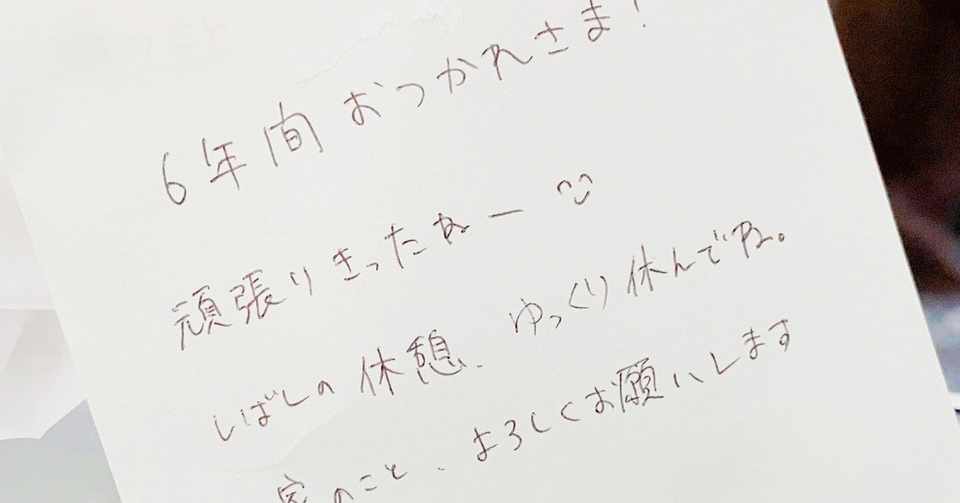 6年間おつかれさま!
頑張りきったねー
しばしの休憩、ゆっくり休んでね。
家のこと、よろしくお願いします